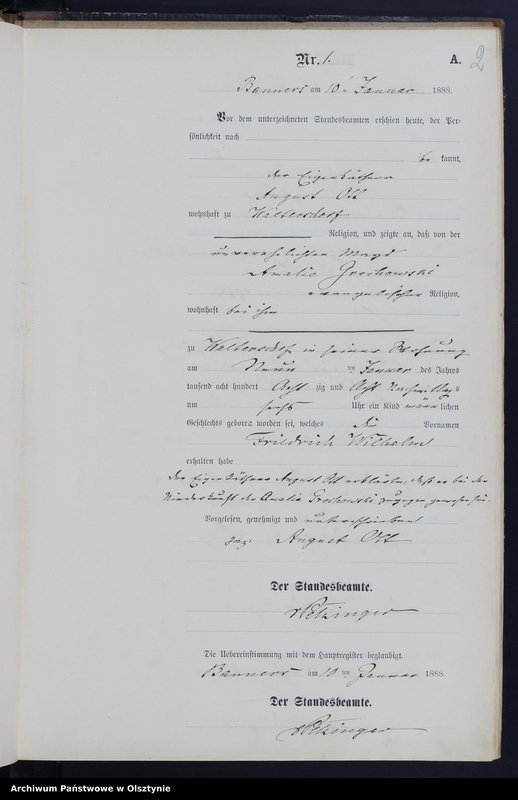 Nr. 1.
A. 2
Banners am 10ten Januar 1888.
Vor dem unterzeichneten Standesbeamten erschien heute, der Per-
sönlichkeit nach
be kannt,
der Eigenkäthner
August Ott
wohnhaft zu Woltersdorf
Religion, und zeigte an, daß von der
unverehelichten Magd
Amalie Grochowski
evangelischer Religion,
wohnhaft bei ihm
zu Woltersdorf in seiner Wohnung
am Neun ten Januar des Jahres
tausend acht hundert Acht zig und Acht Nachmittags
um sechs Uhr ein Kind männ lichen
Geschlechts geboren worden sei, welches die Vornamen
Friedrich Wilhelm
erhalten habe
Der Eigenkäthner August Ott erklärte, daß er bei der
Niederkunft der Amalie Grochowski zugegen gewesen sei.
Vorgelesen, genehmigt und unterschrieben
gez: August Ott
Der Standesbeamte.
Die Uebereinstimmung mit dem Hauptregister beglaubigt.
Banners am 10 ten Januar 1888.
Der Standesbeamte.
Archiwum Państwowe w Olsztynie